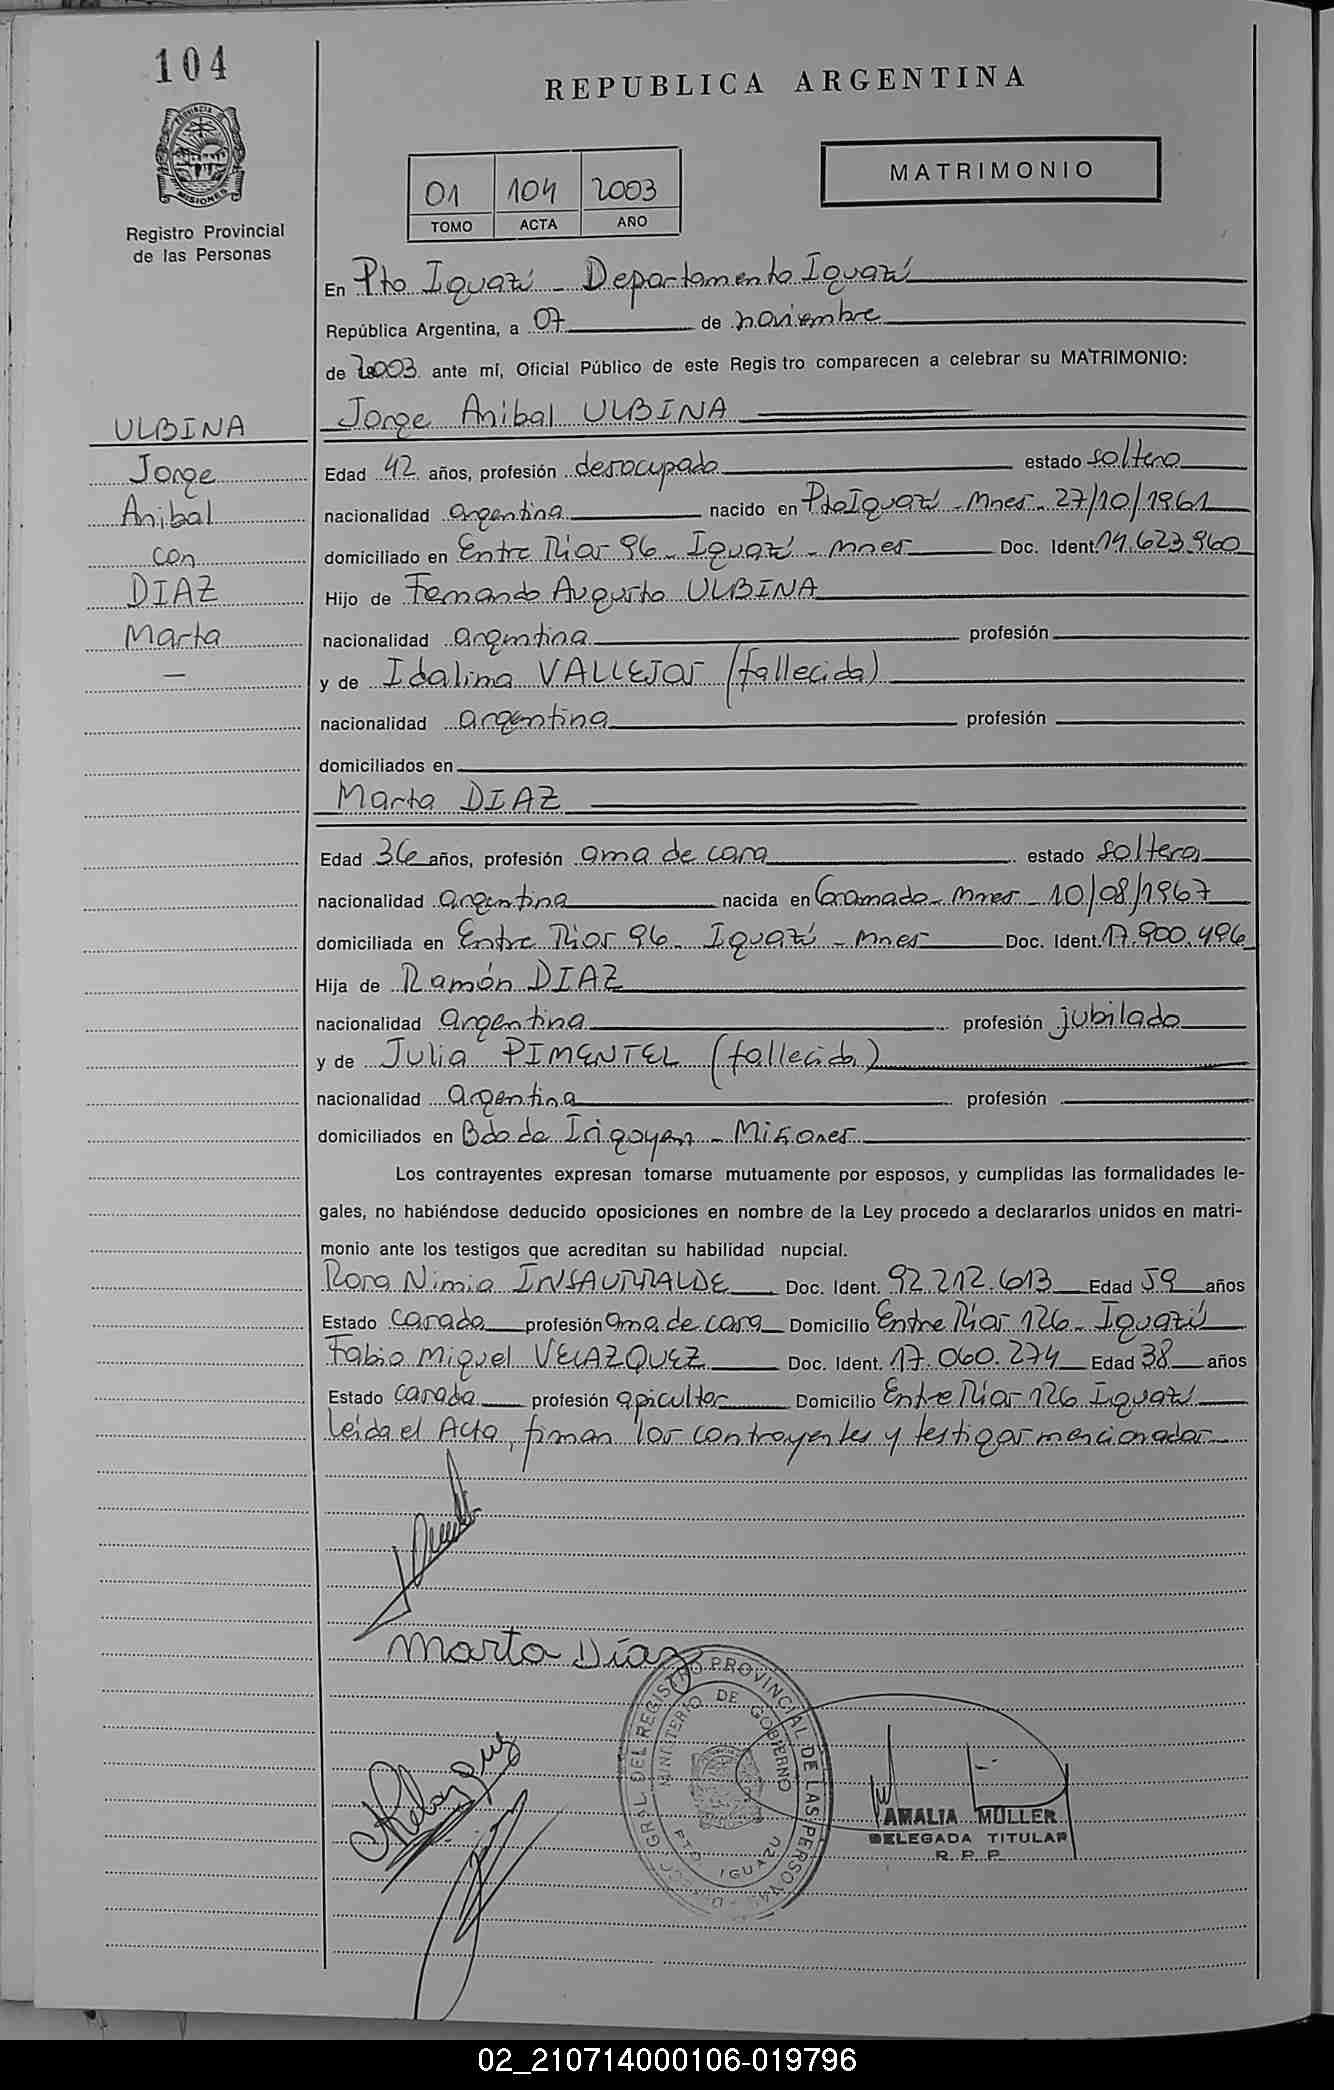 104
REPUBLICA ARGENTINA
PROVINCIA DE
MISIONES
MATRIMONIO
01 104 2003
TOMO ACTA AÑO
Registro Provincial
de las Personas
En Pto Iguazú - Departamento Iguazú
República Argentina, a 07 de noviembre
de 2003 ante mí, Oficial Público de este Registro comparecen a celebrar su MATRIMONIO:
ULBINA
Jorge
Anibal
con
DIAZ
Marta
—
Jorge Anibal ULBINA
Edad 42 años, profesión desocupado estado soltero
nacionalidad argentina nacido en Pto Iguazú - Mnes - 27/10/1961
domiciliado en Entre Rios 96 - Iguazú - Mnes Doc. Ident. 14.623.960
Hijo de Fernando Augusto ULBINA
nacionalidad argentina profesión
y de Idalina VALLEJOS (fallecida)
nacionalidad argentina profesión
domiciliados en
Marta DIAZ
Edad 36 años, profesión ama de casa estado soltera
nacionalidad argentina nacida en Gramado - Mnes - 10/08/1967
domiciliada en Entre Rios 96 - Iguazú - Mnes Doc. Ident. 17.900.496
Hija de Ramón DIAZ
nacionalidad argentina profesión jubilado
y de Julia PIMENTEL (fallecida)
nacionalidad argentina profesión
domiciliados en Bdo de Irigoyen - Misiones
Los contrayentes expresan tomarse mutuamente por esposos, y cumplidas las formalidades le-
gales, no habiéndose deducido oposiciones en nombre de la Ley procedo a declararlos unidos en matri-
monio ante los testigos que acreditan su habilidad nupcial.
Rosa Nimia INSAURRALDE Doc. Ident. 92.212.613 Edad 59 años
Estado casada profesión ama de casa Domicilio Entre Rios 126 - Iguazú
Fabio Miguel VELAZQUEZ Doc. Ident. 17.060.274 Edad 38 años
Estado casado profesión apicultor Domicilio Entre Rios 126 Iguazú
Leída el Acta, firman los contrayentes y testigos mencionados
Marta Díaz
Velazquez
GRAL DEL REGISTRO PROVINCIAL DE LAS PERSONAS
MINISTERIO DE GOBIERNO
PTO IGUAZU
AMALIA MÜLLER
DELEGADA TITULAR
R. P. P.
02_210714000106-019796